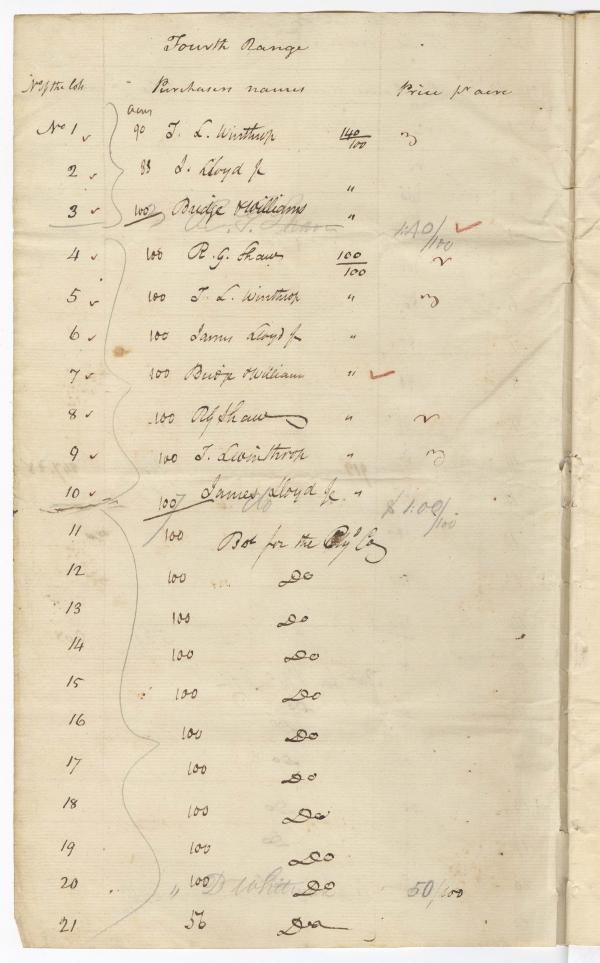 Fourth Range
No of the lots Purchasers names Price pr acre
acres
No 1 90 T. L. Winthrop 140/100
2 88 J. Lloyd Jr "
3 100 Bridge & Williams "
1.40/100
4 100 R. G. Shaw 100/100
5 100 T. L. Winthrop "
6 100 James Lloyd Jr "
7 100 Bridge & William "
8 100 RG Shaw "
9 100 T. L Winthrop "
10 100 James Lloyd Jr. "
$ 1.00/100
11 100 Bot for the Co
12 100 Do
13 100 Do
14 100 Do
15 100 Do
16 100 Do
17 100 Do
18 100 Do
19 100 Do
20 " 100 Do 50/100
21 56 Do